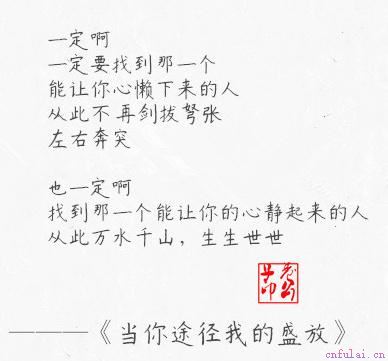 一定啊
一定要找到那一个
能让你心懒下来的人
从此不再剑拔弩张
左右奔突
也一定啊
找到那一个能让你的心静起来的人
从此万水千山，生生世世
————《当你途径我的盛放》
cnfulai.cn